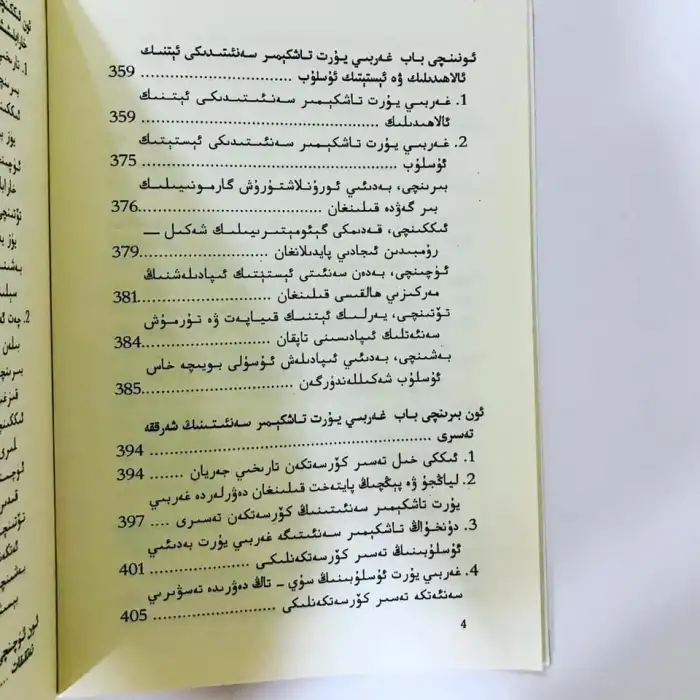 ئونىنچى باب غەربىي يۇرت تاشكېمىر سەنئىتىدىكى ئېتنىك
ئالاھىدىلىك ۋە ئېستېتىك ئۇسلۇب ........................ 359
1. غەربىي يۇرت تاشكېمىر سەنئىتىدىكى ئېتنىك
ئالاھىدىلىك ........................ 359
2. غەربىي يۇرت تاشكېمىر سەنئىتىدىكى ئېستېتىك
ئۇسلۇب ........................ 375
بىرىنچى، بەدىئىي ئورۇنلاشتۇرۇش گارمونىيىلىك
بىر گەۋدە قىلىنغان ........................ 376
ئىككىنچى، قەدىمكى گېئومېتىرىيىلىك شەكىل —
رومبىدىن ئىجادىي پايدىلانغان ........................ 379
ئۈچىنچى، بەدەن سەنئىتى ئېستېتىك ئىپادىلەشنىڭ
مەركىزىي ھالقىسى قىلىنغان ........................ 381
تۆتىنچى، يەرلىك ئېتنىك قىياپەت ۋە تۇرمۇش
سەنئەتلىك ئىپادىسىنى تاپقان ........................ 384
بەشىنچى، بەدىئىي ئىپادىلەش ئۇسۇلى بويىچە خاس
ئۇسلۇب شەكىللەندۈرگەن ........................ 385
ئون بىرىنچى باب غەربىي يۇرت تاشكېمىر سەنئىتىنىڭ شەرققە
تەسىرى ........................ 394
1. ئىككى خىل تەسىر كۆرسەتكەن تارىخىي جەريان ....... 394
2. لياڭجۇ ۋە پىڭچىڭ پايتەخت قىلىنغان دەۋرلەردە غەربىي
يۇرت تاشكېمىر سەنئىتىنىڭ كۆرسەتكەن تەسىرى .... 397
3. دۇنخۇاڭ تاشكېمىر سەنئىتىگە غەربىي يۇرت بەدىئىي
ئۇسلۇبىنىڭ تەسىر كۆرسەتكەنلىكى ........................ 401
4. غەربىي يۇرت ئۇسلۇبىنىڭ سۈي – تاڭ دەۋرىدە تەسۋىرىي
سەنئەتكە تەسىر كۆرسەتكەنلىكى ........................ 405
4